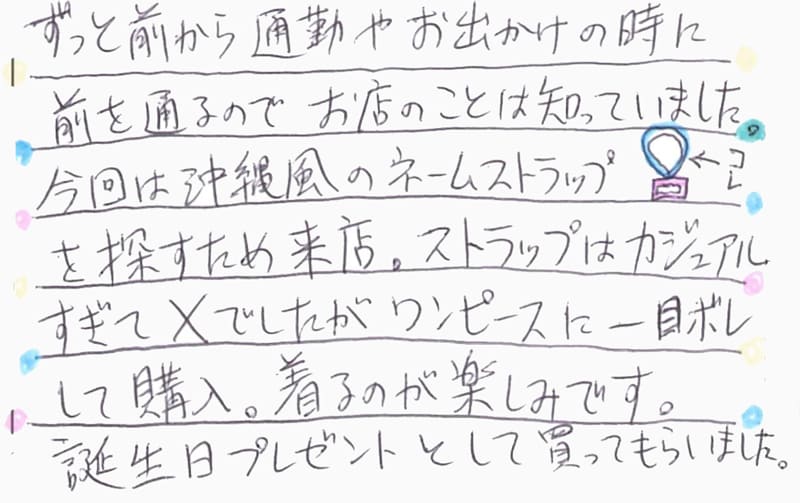 ずっと前から通勤やお出かけの時に
前を通るのでお店のことは知っていました。
今回は沖縄風のネームストラップ ←コレ
を探すため来店。ストラップはカジュアル
すぎて×でしたがワンピースに一目ボレ
して購入。着るのが楽しみです。
誕生日プレゼントとして買ってもらいました。